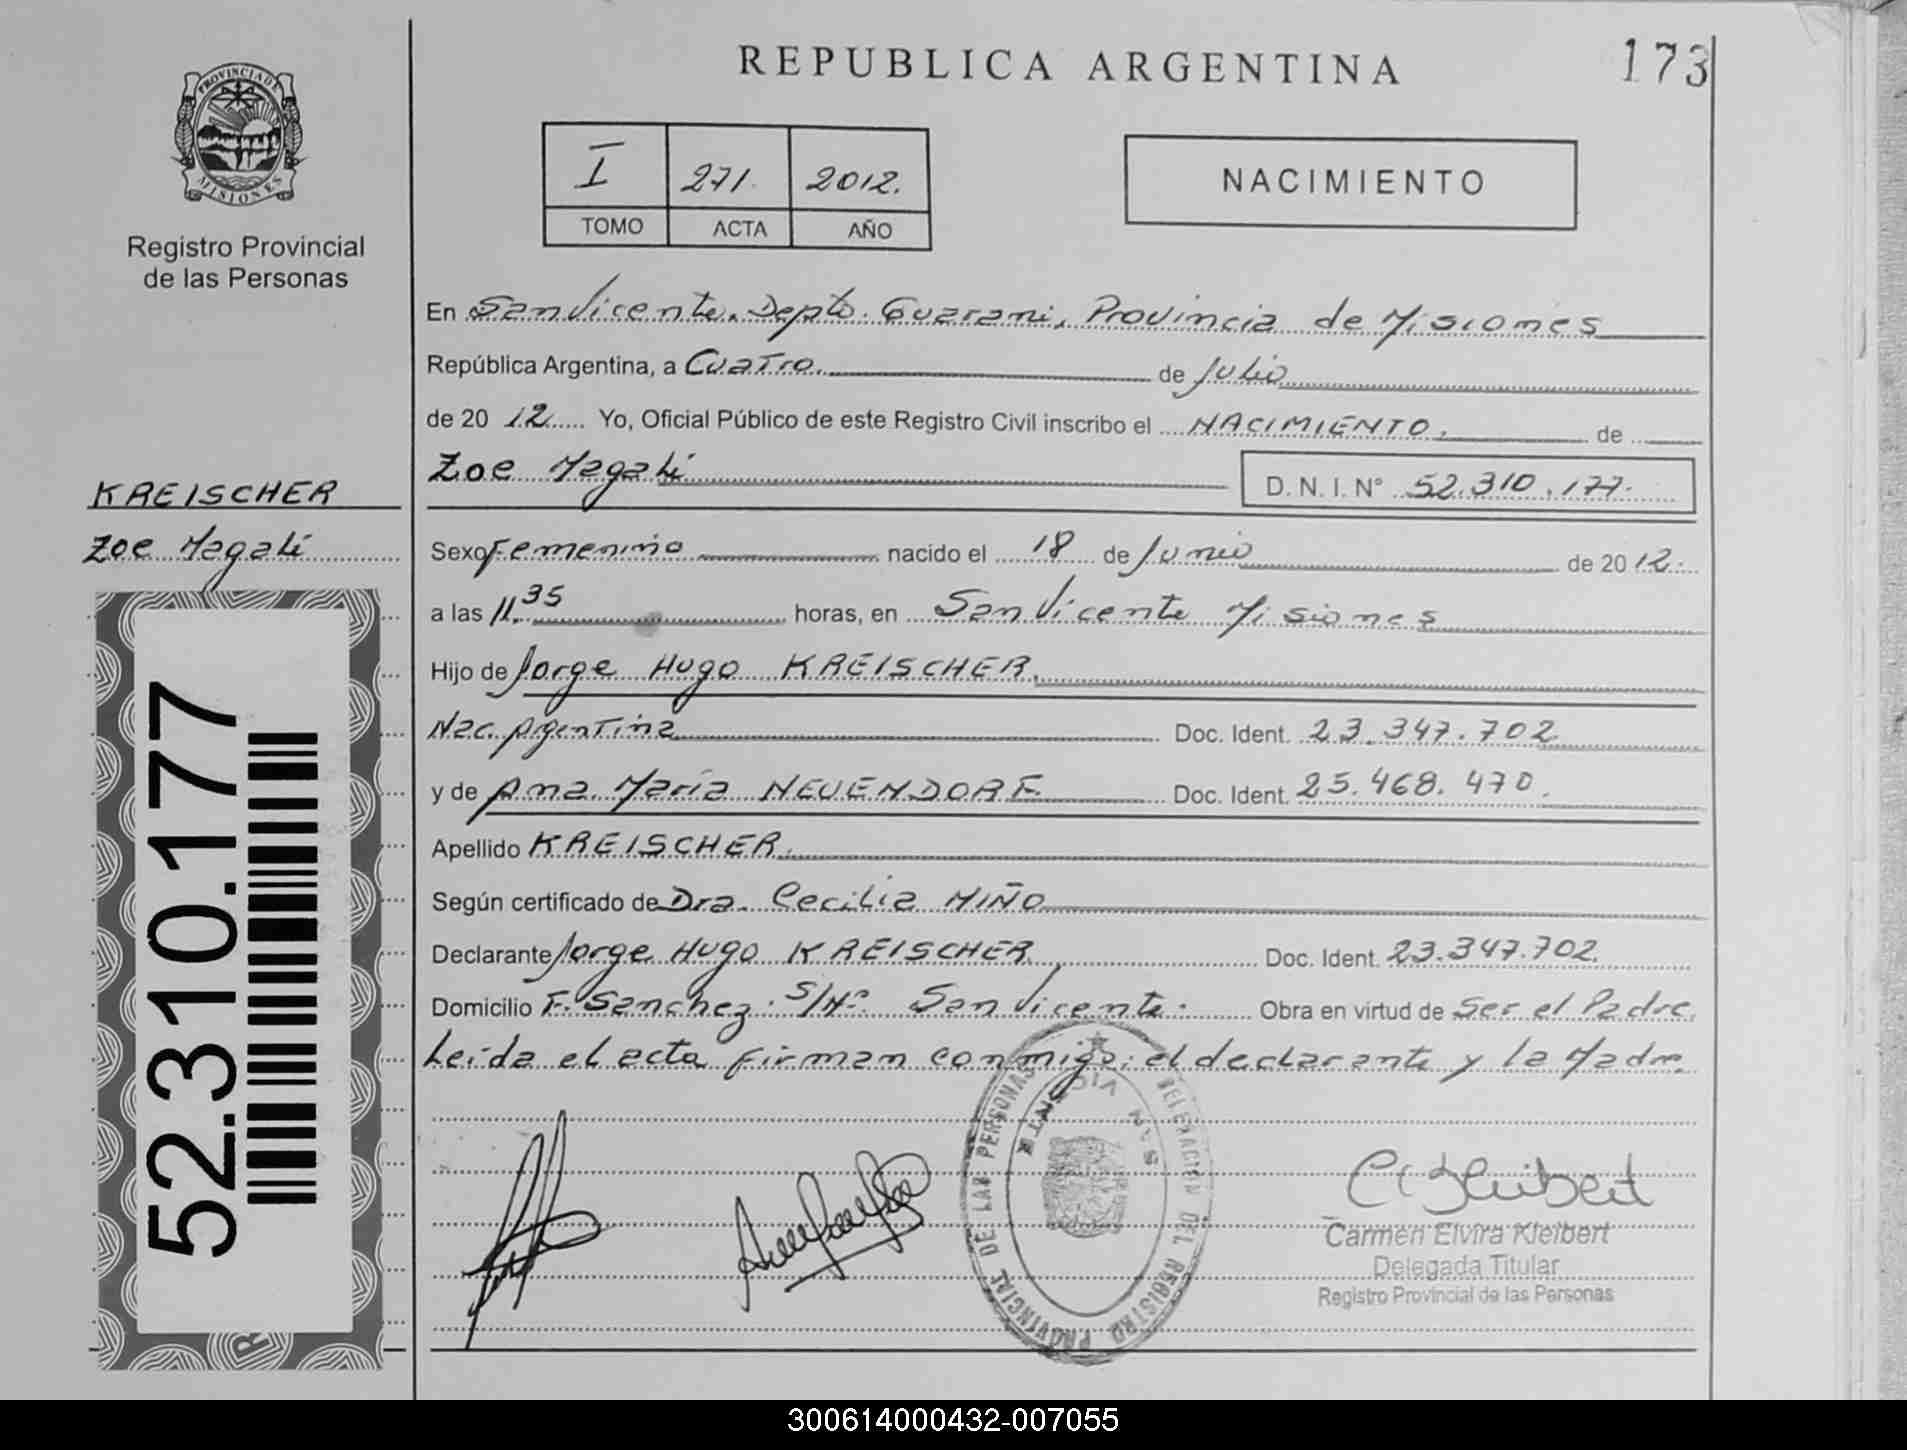 REPUBLICA ARGENTINA
173
PROVINCIA DE
MISIONES
Registro Provincial
de las Personas
I 271. 2012.
TOMO ACTA AÑO
NACIMIENTO
En San Vicente. Depto. Guarani, Provincia de Misiones
República Argentina, a Cuatro. de Julio
de 20 12 Yo, Oficial Público de este Registro Civil inscribo el NACIMIENTO. de
Zoe Magali
D. N. I. N° 52.310.177.
KREISCHER
Zoe Magali
Sexo Femenino nacido el 18 de Junio de 20 12.
a las 11.35 horas, en San Vicente Misiones
Hijo de Jorge Hugo KREISCHER.
Nac. Argentina Doc. Ident. 23.347.702
y de Ana María NEUENDORF. Doc. Ident. 25.468.470.
Apellido KREISCHER.
Según certificado de Dra. Cecilia MIÑO
Declarante Jorge Hugo KREISCHER Doc. Ident. 23.347.702.
Domicilio F. Sanchez. S/Nº San Vicente. Obra en virtud de Ser el Padre.
Leida el acta firman conmigo: el declarante y la Madre.
52.310.177
DELEGACION DEL REGISTRO PROVINCIAL DE LAS PERSONAS
SAN VICENTE
Carmen Elvira Kleibert
Delegada Titular
Registro Provincial de las Personas
300614000432-007055